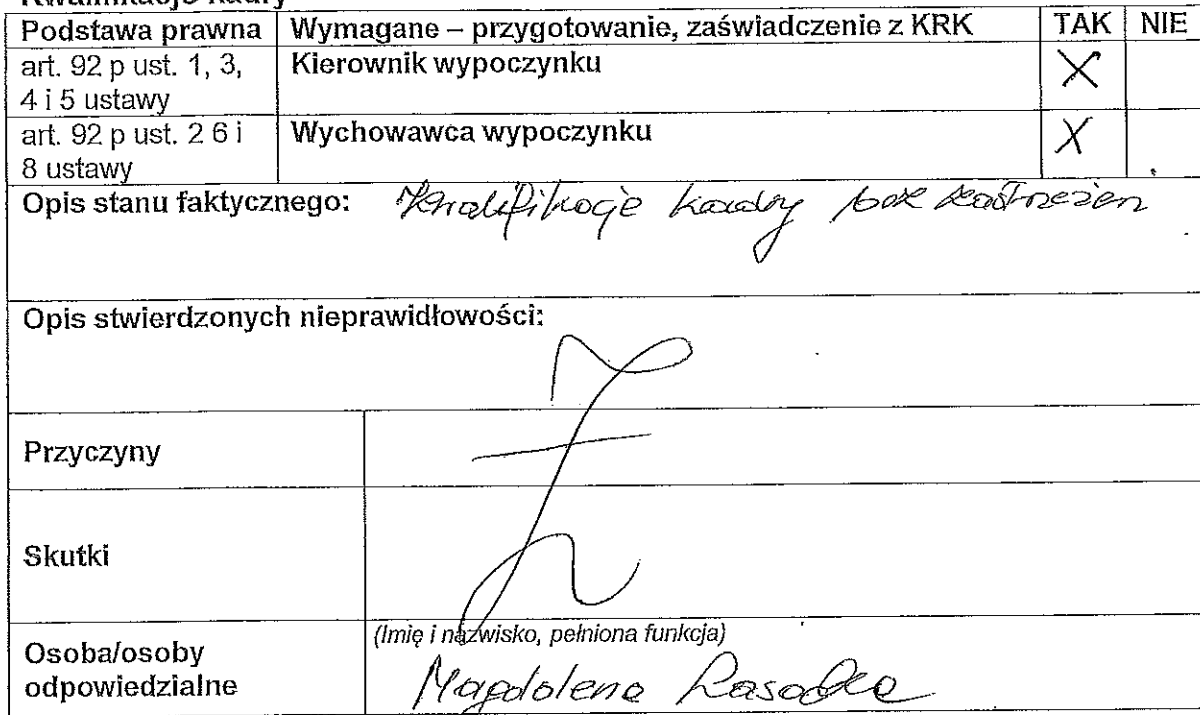 Kwalifikacje kadry
Podstawa prawna Wymagane – przygotowanie, zaświadczenie z KRK TAK NIE
art. 92 p ust. 1, 3, 4 i 5 ustawy Kierownik wypoczynku X
art. 92 p ust. 2 6 i 8 ustawy Wychowawca wypoczynku X
Opis stanu faktycznego: Kwalifikacje kadry bez zastrzeżeń
Opis stwierdzonych nieprawidłowości:
Przyczyny
Skutki
Osoba/osoby odpowiedzialne (Imię i nazwisko, pełniona funkcja)
Magdalena